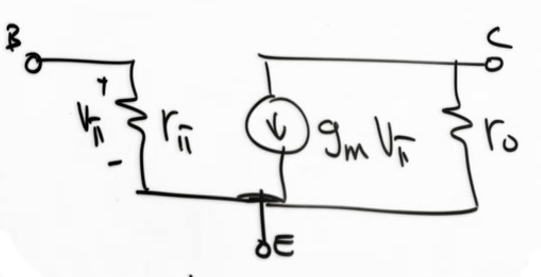 B
C
+
Vπ
rπ
-
gm Vπ
ro
E